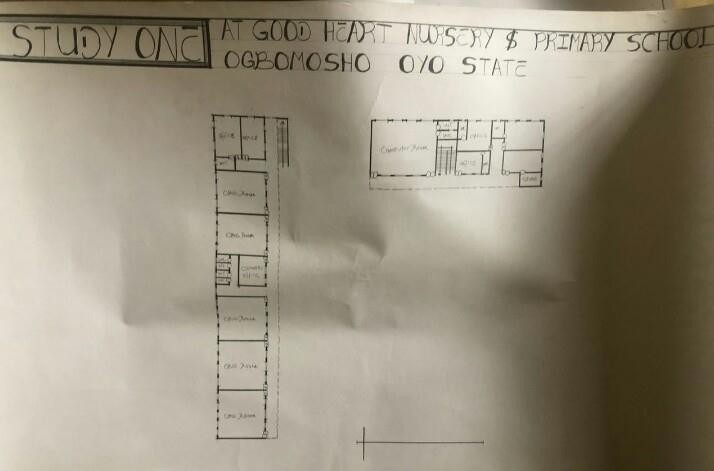 STUDY ONE
AT GOOD HEART NURSERY & PRIMARY SCHOOL
OGBOMOSHO OYO STATE
OFFICE
OFFICE
Class Room
Class Room
Class Room
Class Room
Class Room
Computer Room
OFFICE
OFFICE